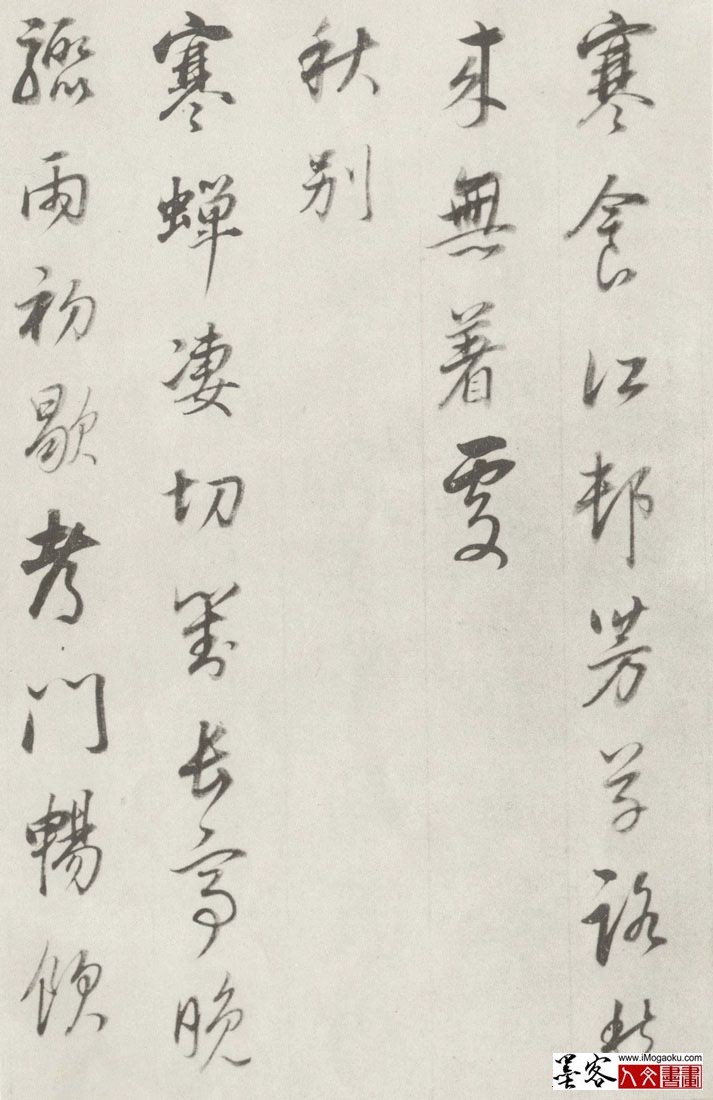 寒食江邨芳草路
来無著處
秋别
寒蟬凄切對長亭晚
驟雨初歇都門暢飲
墨客
www.iMogaoku.com
人文書畫